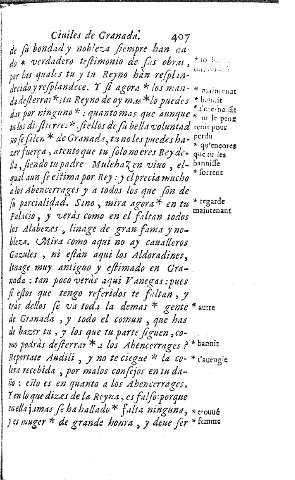 Civiles de Granada. 407
de su bondad y nobleza siempre han da-
do * verdadero testimonio de sus obras,
por las quales tu y tu Reyno han resplan-
decido y resplandece. Y si agora * los man-
das desterrar * ; tu Reyno de oy mas * lo puedes
dar por ninguno * : quanto mas que aunque
tu los destierres * : si ellos de su bella voluntad
no se salen * de Granada, tu no les puedes ha-
zer fuerça, atento que tu solo no eres Rey de-
lla, siendo tu padre Mulehazen vivo, el-
qual aun se estima por Rey : y el precia mucho
a los Abencerrages y a todos los que son de
su parcialidad. Sino, mira agora * en tu
Palacio, y veràs como en el faltan todos
los Alabezes, linage de gran fama y no-
bleza. Mira como aqui no ay cavalleros
Gazules, ni estàn aqui los Aldoradines,
linage muy antiguo y estimado en Gra-
nada : tan poco veràs aqui Vanegas : pues
si estos que tengo referidos te faltan, y
tràs dellos se va toda la demàs * gente
de Granada, y todo el comun, que has
de hazer tu, y los que tu parte siguen, co-
mo podràs desterrar * a los Abencerrages ?
Reportate Audili, y no te ciegue * la co-
lera recebida, por malos consejos en tu da-
ño : esto es en quanto a los Abencerrages.
Y en lo que dizes de la Reyna, es falso : porque
en ella jamas se ha hallado * falta ninguna,
y es muger * de grande honra, y deve ser
* maintenant
* banuit
* ne le peux
tenir pour
perdu
* qu'encores
que tu les
bannisse
* sortent
* regarde
maintenant
* autre
* bannir
* t'aveugle
* trouué
* femme